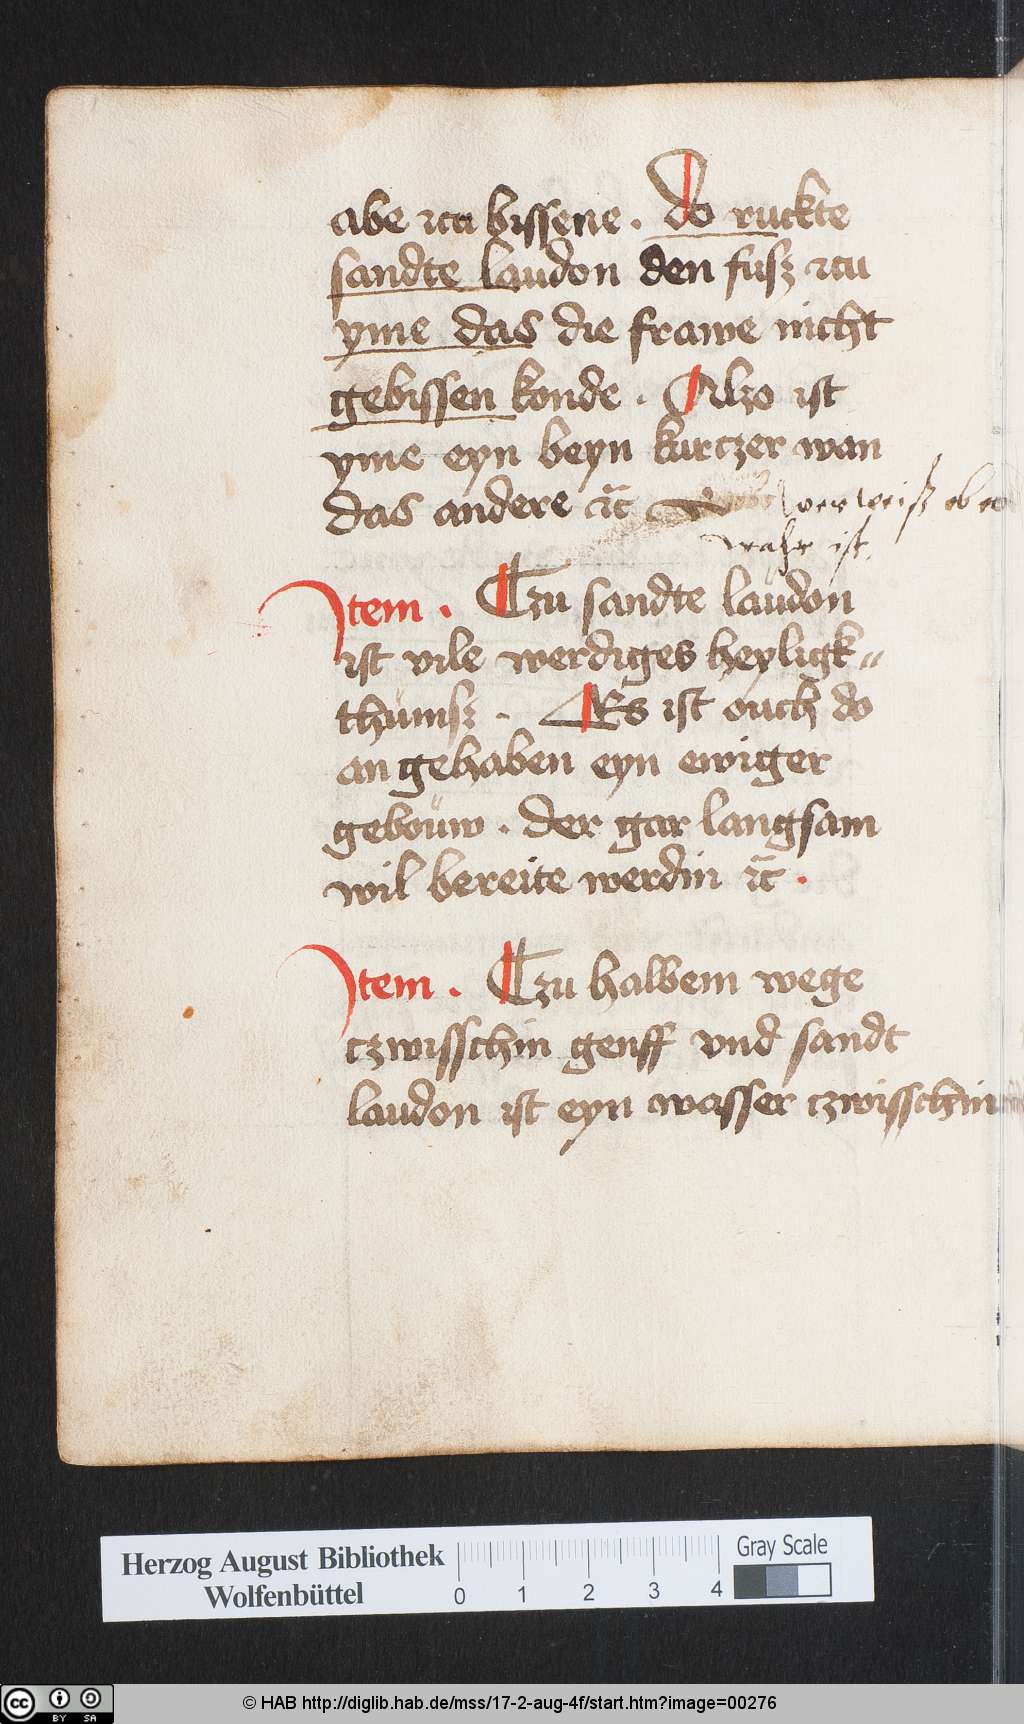 abe zcu bissene . do ruckte
sandte laudon den fusz zcu
yme das die frawe nicht
gebissen konde . Alzo ist
yme eyn beyn kurczer wan
das andere ꝛc̃ wer weiß ob es
wahr ist.
Item . Czu sandte laüdon
ist vile werdiges heyligk〃
thümsz . Es ist ouch do
an gehaben eyn ewiger
geboüw . der gar langsam
wil bereite werdin ꝛc̃ .
Item . Czu halbem wege
czwisschin genff vnd sandt
laudon ist eyn wasser czwisschin
Herzog August Bibliothek
Wolfenbüttel
0 1 2 3 4
Gray Scale
cc BY SA
© HAB http://diglib.hab.de/mss/17-2-aug-4f/start.htm?image=00276